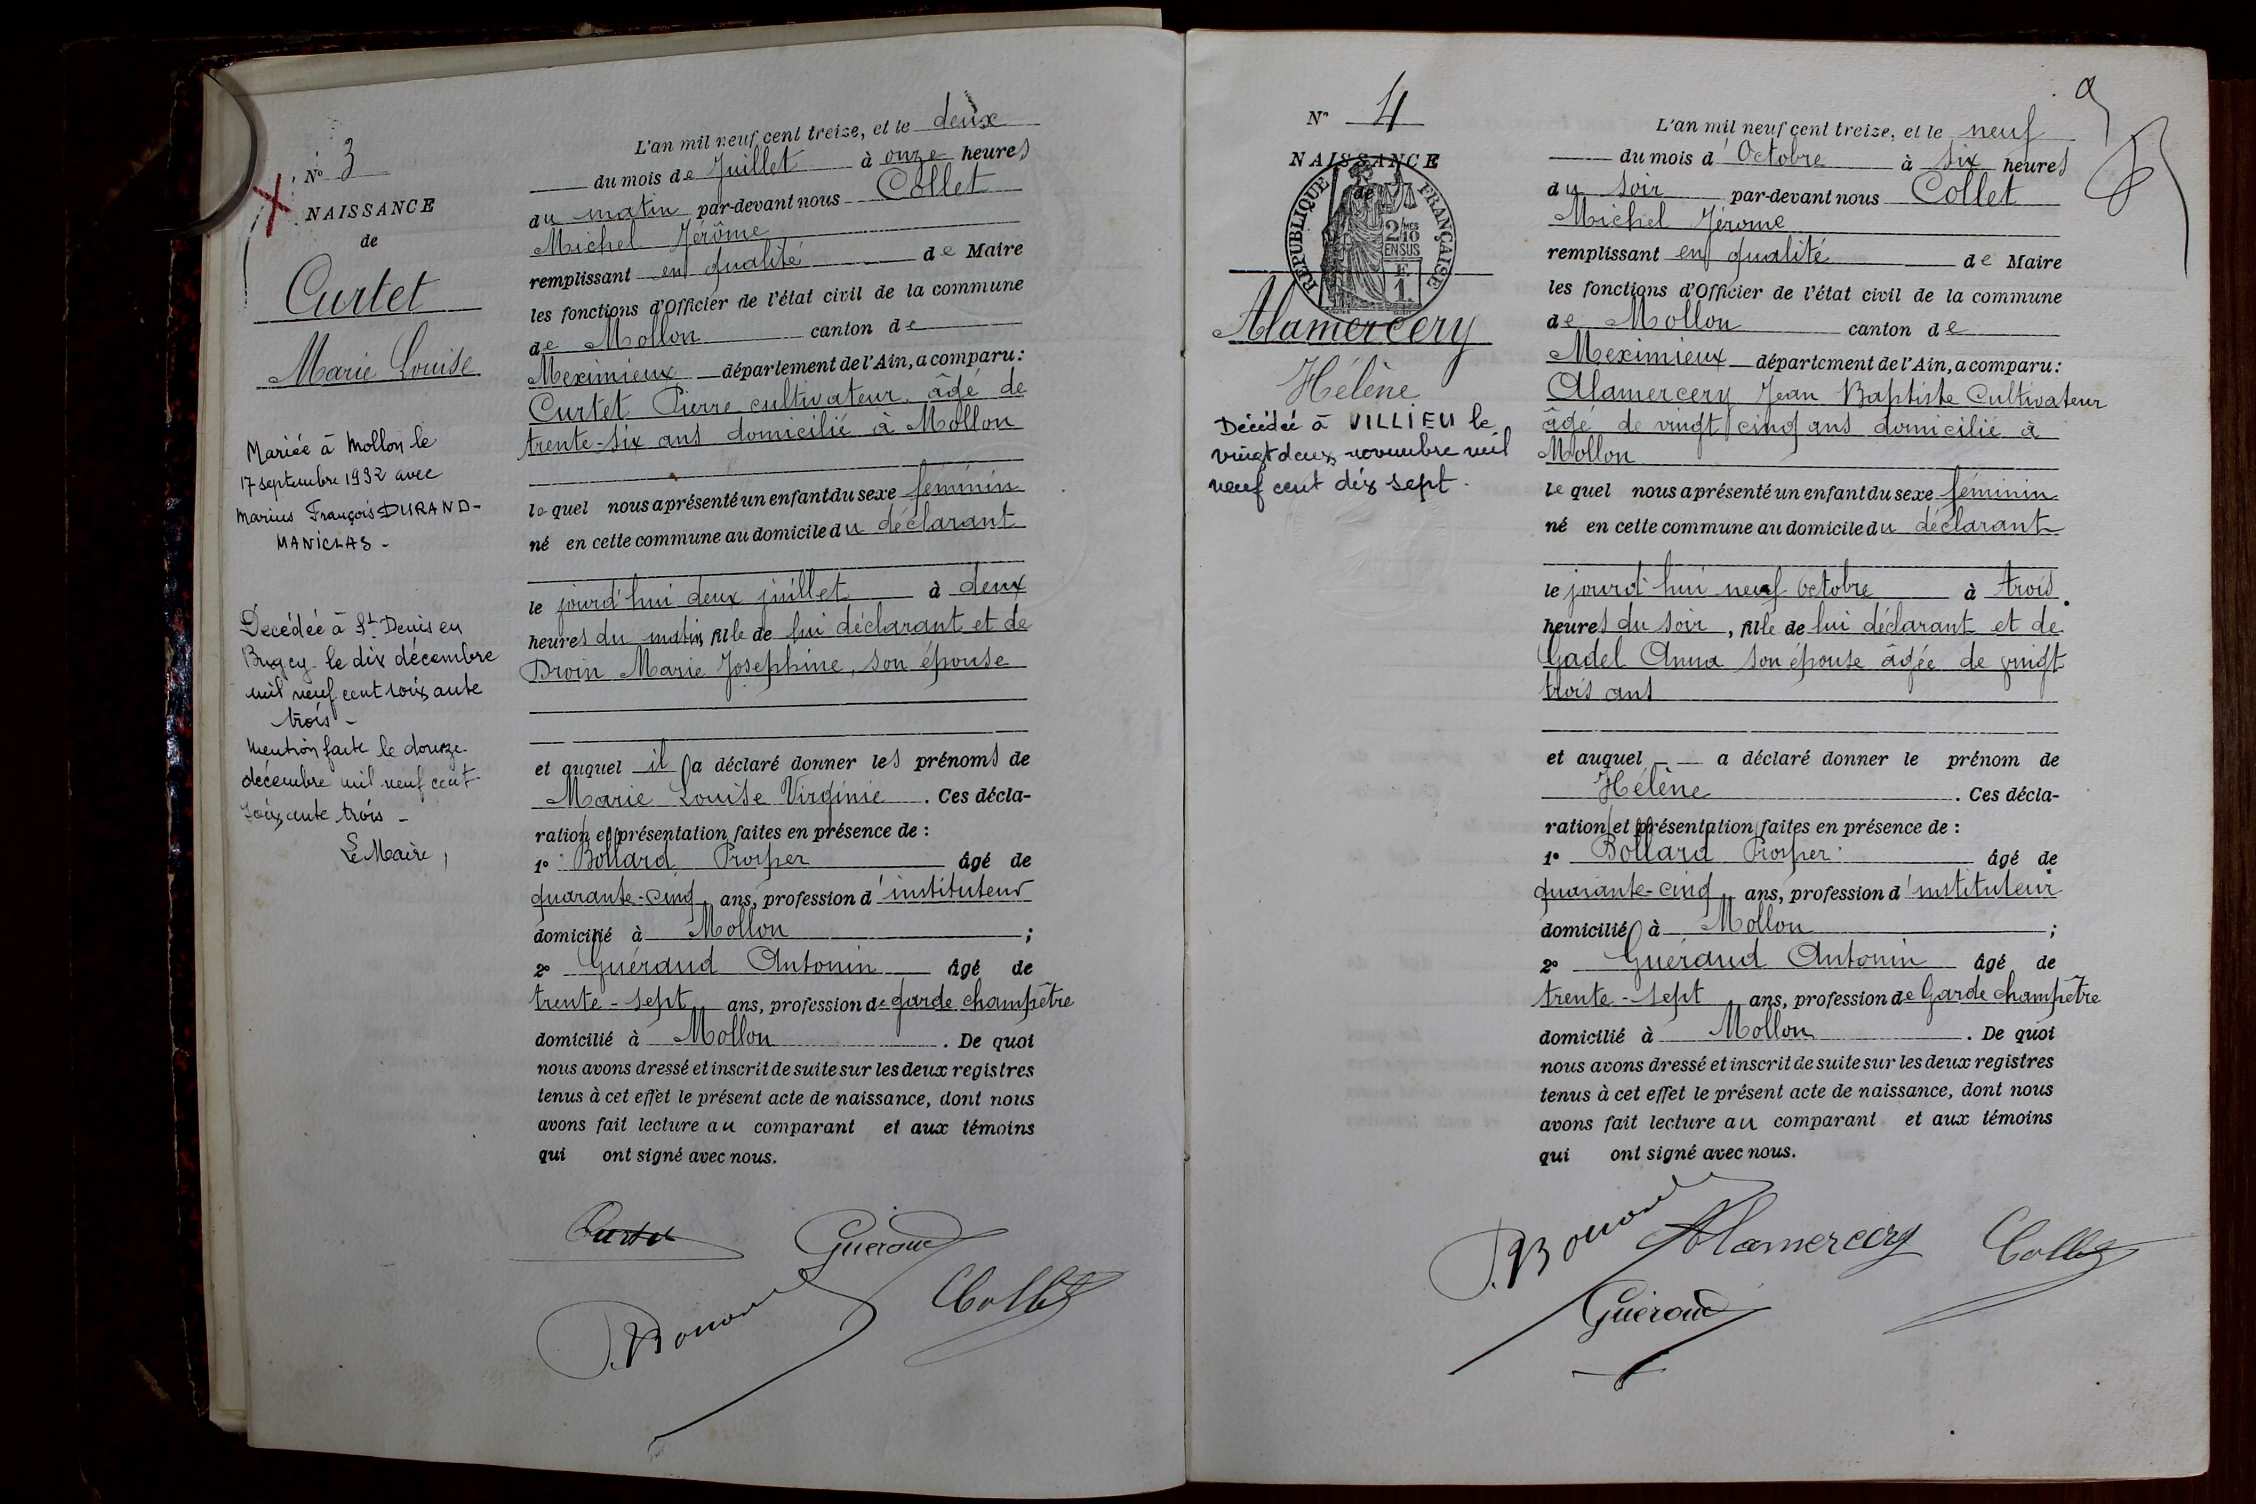 N° 3
NAISSANCE
de
Curtet
Marie Louise
Mariée à Mollon le
17 septembre 1932 avec
Marius François DURAND-
MANICLAS -
Decédée à St Denis en
Bugey le dix décembre
mil neuf cent soixante
trois -
Mention faite le douze
décembre mil neuf cent
soixante trois -
Le Maire,
L'an mil neuf cent treize, et le deux
du mois de Juillet à onze heures
du matin par-devant nous Collet
Michel Jérôme
remplissant en qualité de Maire
les fonctions d'Officier de l'état civil de la commune
de Mollon canton de
Meximieux département de l'Ain, a comparu:
Curtet Pierre cultivateur âgé de
trente-six ans domicilié à Mollon
lequel nous a présenté un enfant du sexe féminin
né en cette commune au domicile du déclarant
le jourd'hui deux juillet à deux
heures du matin, fille de lui déclarant et de
Droin Marie Josephine, son épouse
et auquel il a déclaré donner les prénoms de
Marie Louise Virginie. Ces décla-
ration et présentation faites en présence de :
1° Bollard Prosper âgé de
quarante-cinq ans, profession d'instituteur
domicilié à Mollon ;
2° Guéraud Antonin âgé de
trente-sept ans, profession de garde champêtre
domicilié à Mollon. De quoi
nous avons dressé et inscrit de suite sur les deux registres
tenus à cet effet le présent acte de naissance, dont nous
avons fait lecture au comparant et aux témoins
qui ont signé avec nous.
Curtet Gueraud
P. Bollard Collet
N° 4
NAISSANCE
de
REPUBLIQUE FRANÇAISE
2/10 MES
EN SUS
F.
1
Alamercery
Hélène
Décédée à VILLIEU le
vingt deux novembre mil
neuf cent dix sept.
L'an mil neuf cent treize, et le neuf
du mois d'Octobre à six heures
du soir par-devant nous Collet
Michel Jérome
remplissant en qualité de Maire
les fonctions d'Officier de l'état civil de la commune
de Mollon canton de
Meximieux département de l'Ain, a comparu:
Alamercery Jean Baptiste Cultivateur
âgé de vingt cinq ans domicilié à
Mollon
lequel nous a présenté un enfant du sexe féminin
né en cette commune au domicile du déclarant
le jourd'hui neuf octobre à trois
heures du soir, fille de lui déclarant et de
Gadel Anna son épouse âgée de vingt
trois ans
et auquel a déclaré donner le prénom de
Hélène. Ces décla-
ration et présentation faites en présence de :
1° Bollard Prosper âgé de
quarante-cinq ans, profession d'instituteur
domicilié à Mollon ;
2° Guéraud Antonin âgé de
trente-sept ans, profession de Garde champêtre
domicilié à Mollon. De quoi
nous avons dressé et inscrit de suite sur les deux registres
tenus à cet effet le présent acte de naissance, dont nous
avons fait lecture au comparant et aux témoins
qui ont signé avec nous.
P. Bollard Alamercery Collet
Gueraud